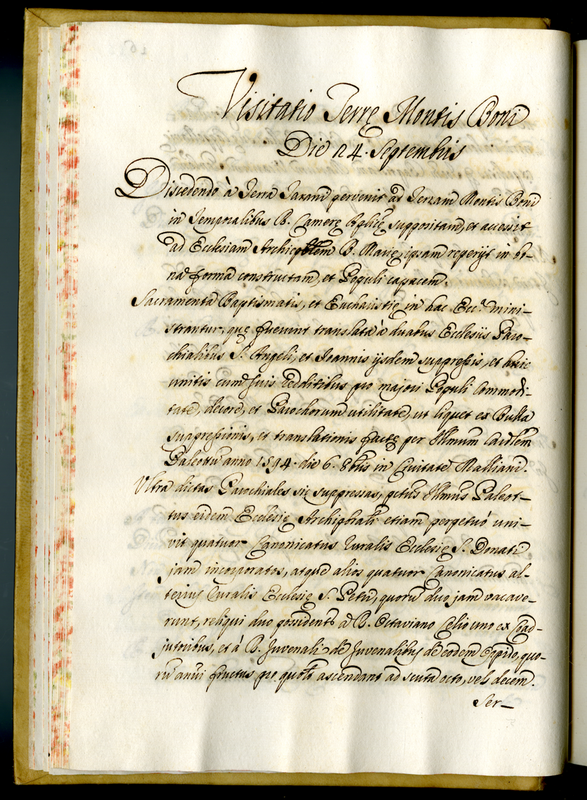 Visitatio Terrę Montis Boni
Die 24. Septembris
Discedendo à Terra Tarani pervenit ad Terram Montis Boni
in Temporalibus R. Camerę Aplicę suppositam, et accessit
ad Ecclesiam Archipbtem B. Marię, ipsam reperijt in bo-
na forma constructam, et Populi capacem.
Sacramenta Baptismatis, et Eucharistię in hac Eccᵃ mini-
strantur, quę fuerunt translata à duabus Ecclesiis Paro-
chialibus S. Angeli, et Joannis ijsdem suppressis, et huic
unitis cum suis redditibus pro majori Populi commodi-
tate, decore, et Parochorum utilitate, ut liquet ex Bulla
suppressionis, et translationis factę per Illmum Cardlem
Paleottum anno 1594. die 6. 8bris in Civitate Malliani.
Ultra dictas Parochiales sic suppressas, Illmus Paleot-
tus eidem Ecclesię Archipbali etiam perpetuò uni-
vit quatuor Canonicatus ruralis Ecclesię S. Donati
jam incorporatos, atque alios quatuor Canonicatus al-
terius ruralis Ecclesię S. Petri, quorum duo jam vacave-
runt, reliqui duo possidentur à R. Octaviano Celio uno ex Coad-
jutribus, et à R. Juvenali de Juvenalibus de eodem Oppido, quo-
rum annui fructus pro quolt ascendant ad scuta octo, vel decem.
Ser-